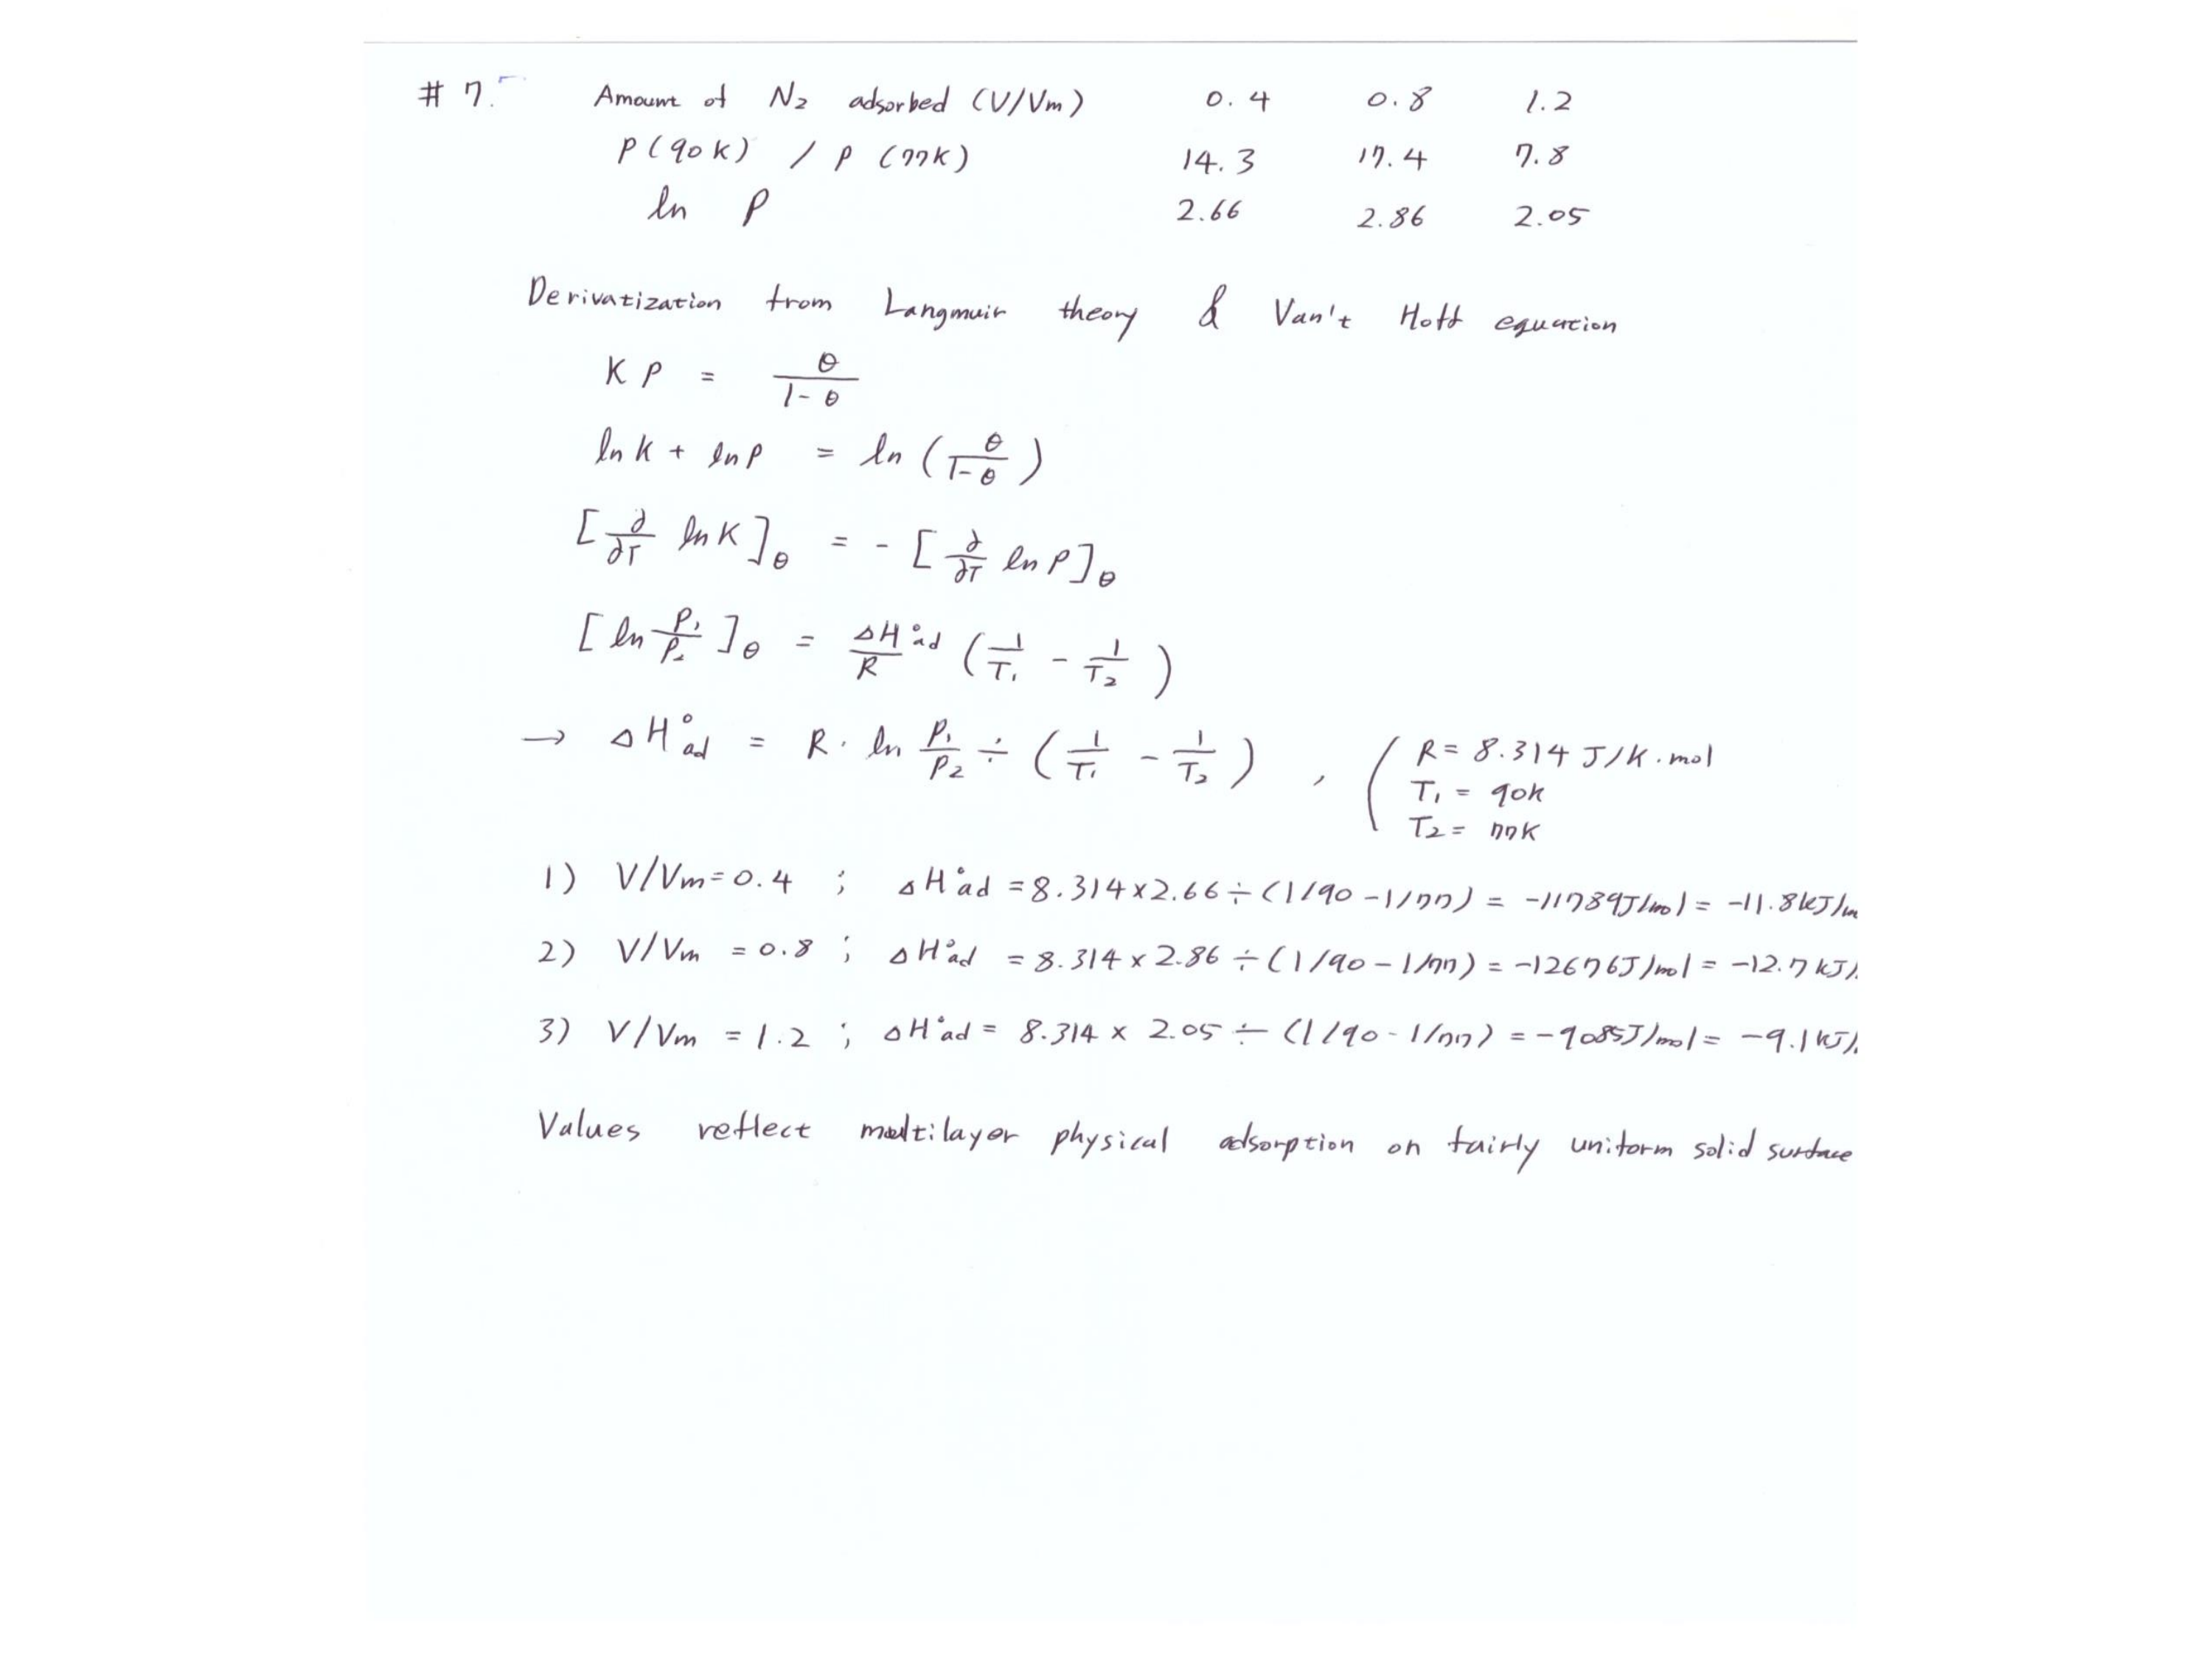 # 7. Amount of N₂ adsorbed (V/Vm) 0.4 0.8 1.2
P(90K) / P(77K) 14.3 17.4 7.8
ln P 2.66 2.86 2.05
Derivatization from Langmuir theory & Van't Hoff equation
KP = θ/(1-θ)
ln K + ln P = ln (θ/(1-θ))
[∂/∂T ln K]θ = - [∂/∂T ln P]θ
[ln P₁/P₂]θ = ΔH°ad/R (1/T₁ - 1/T₂)
→ ΔH°ad = R · ln P₁/P₂ ÷ (1/T₁ - 1/T₂) , ( R = 8.314 J/K·mol
T₁ = 90K
T₂ = 77K
1) V/Vm = 0.4 ; ΔH°ad = 8.314 × 2.66 ÷ (1/90 - 1/77) = -11789J/mol = -11.8kJ/m
2) V/Vm = 0.8 ; ΔH°ad = 8.314 × 2.86 ÷ (1/90 - 1/77) = -12676J/mol = -12.7 kJ/
3) V/Vm = 1.2 ; ΔH°ad = 8.314 × 2.05 ÷ (1/90 - 1/77) = -9085J/mol = -9.1 kJ/
Values reflect multilayer physical adsorption on fairly uniform solid surface